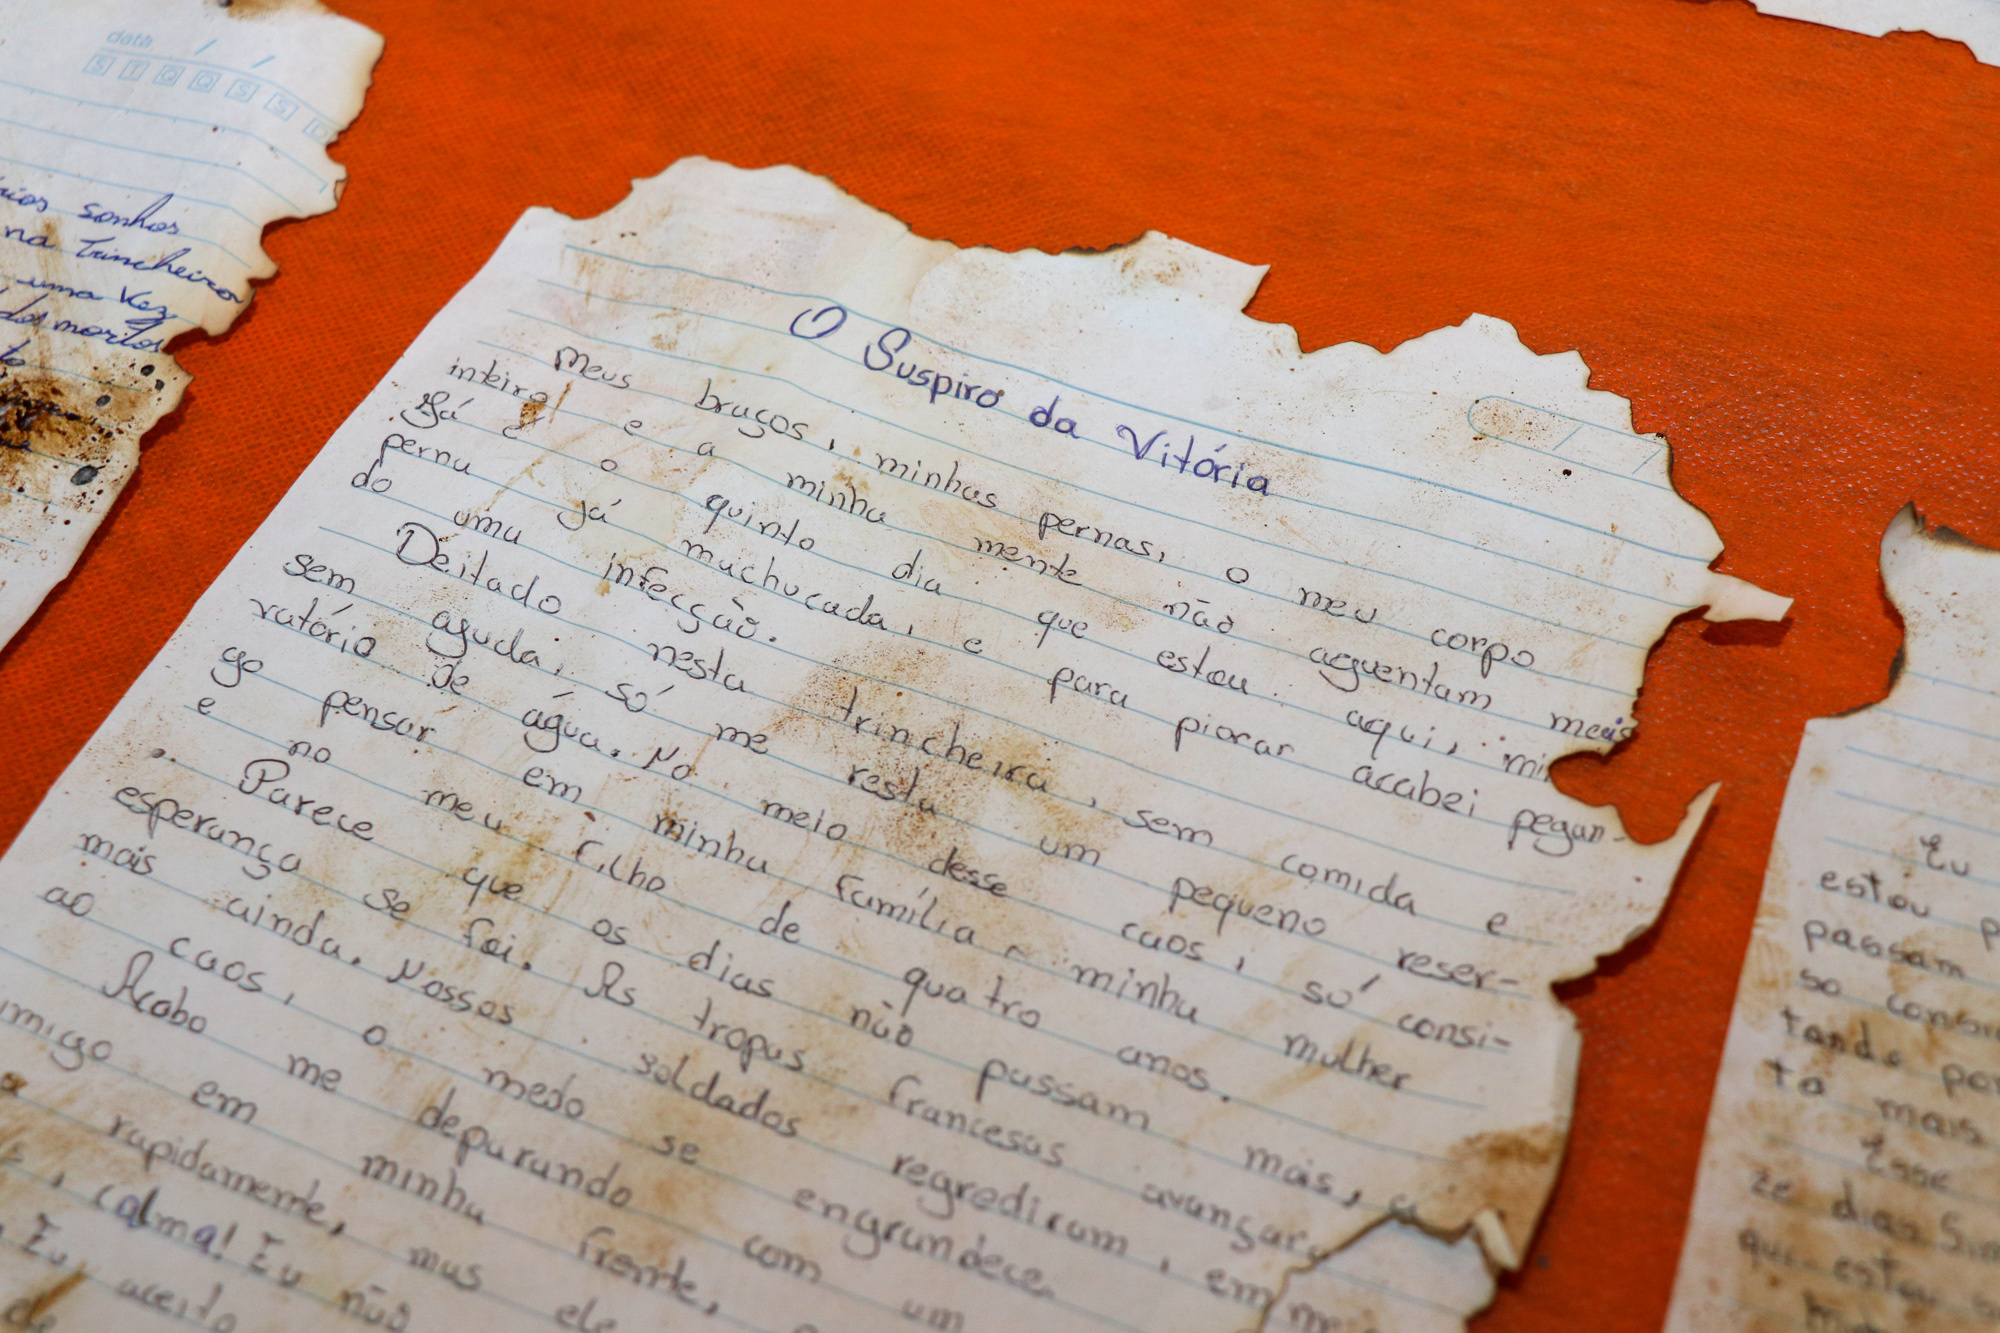 data / /
S T Q Q S S D
sonhos
na trincheira
uma vez
dos mortos
O Suspiro da Vitória
Meus braços, minhas pernas, o meu corpo
inteiro e a minha mente não aguentam mais
Já é o quinto dia que estou aqui, mi
perna já muchucada, e para piorar acabei pegan-
do uma infecção.
Deitado nesta trincheira, sem comida e
sem aguda, só me resta um pequeno reser-
vatório de água. No meio desse caos, só consi-
go pensar em minha família ~ minha mulher
e no meu filho de quatro anos.
Parece que os dias não passam mais, a
esperança se foi. As tropas francesas avançar
mais ainda. Nossos soldados regrediram, em
ao caos, o medo se engrandece.
Acabo me depurando com um
imigo em minha frente,
rapidamente, mas ele
, calma! Eu não
Eu aceito
de
Eu
estou p
passam
so consi
tando por
ta mais
Esse
ze dias Sim
que estou